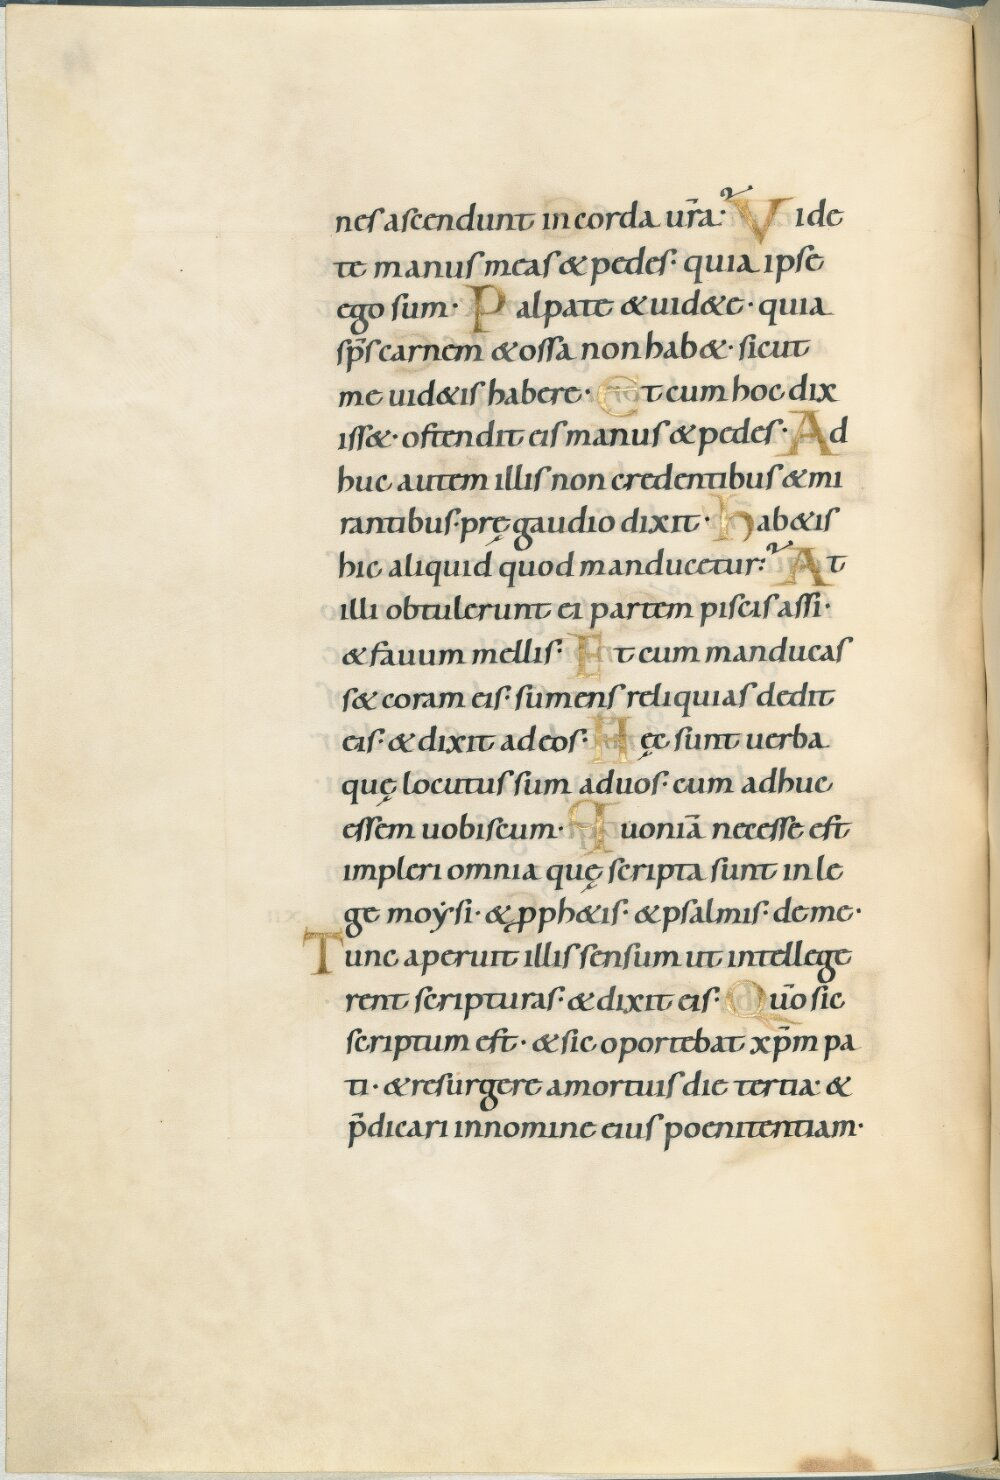 nes ascendunt in corda ur̄a· Vide
te manus meas & pedes· quia ipse
ego sum· Palpate & uid&e· quia
sp̄s carnem & ossa non hab&· sicut
me uid&is habere· Et cum hoc dix
iss&· ostendit eis manus & pedes· Ad
huc autem illis non credentibus & mi
rantibus· prę gaudio dixit· hab&is
hic aliquid quod manducetur? At
illi obtulerunt ei partem piscis assi·
& fauum mellis· Et cum manducas
s& coram eis· sumens reliquias dedit
eis· & dixit ad eos· Hęc sunt uerba
quę locutus sum ad uos· cum adhuc
essem uobiscum· Quoniā necesse est
impleri omnia quę scripta sunt in le
ge moẏsi· & ꝓph&is· & psalmis· de me·
Tunc aperuit illis sensum ut intellege
rent scripturas· & dixit eis· Qūo sic
scriptum est· & sic oportebat xp̄m pa
ti· & resurgere a mortuis die tertia· &
p̄dicari in nomine eius poenitentiam·